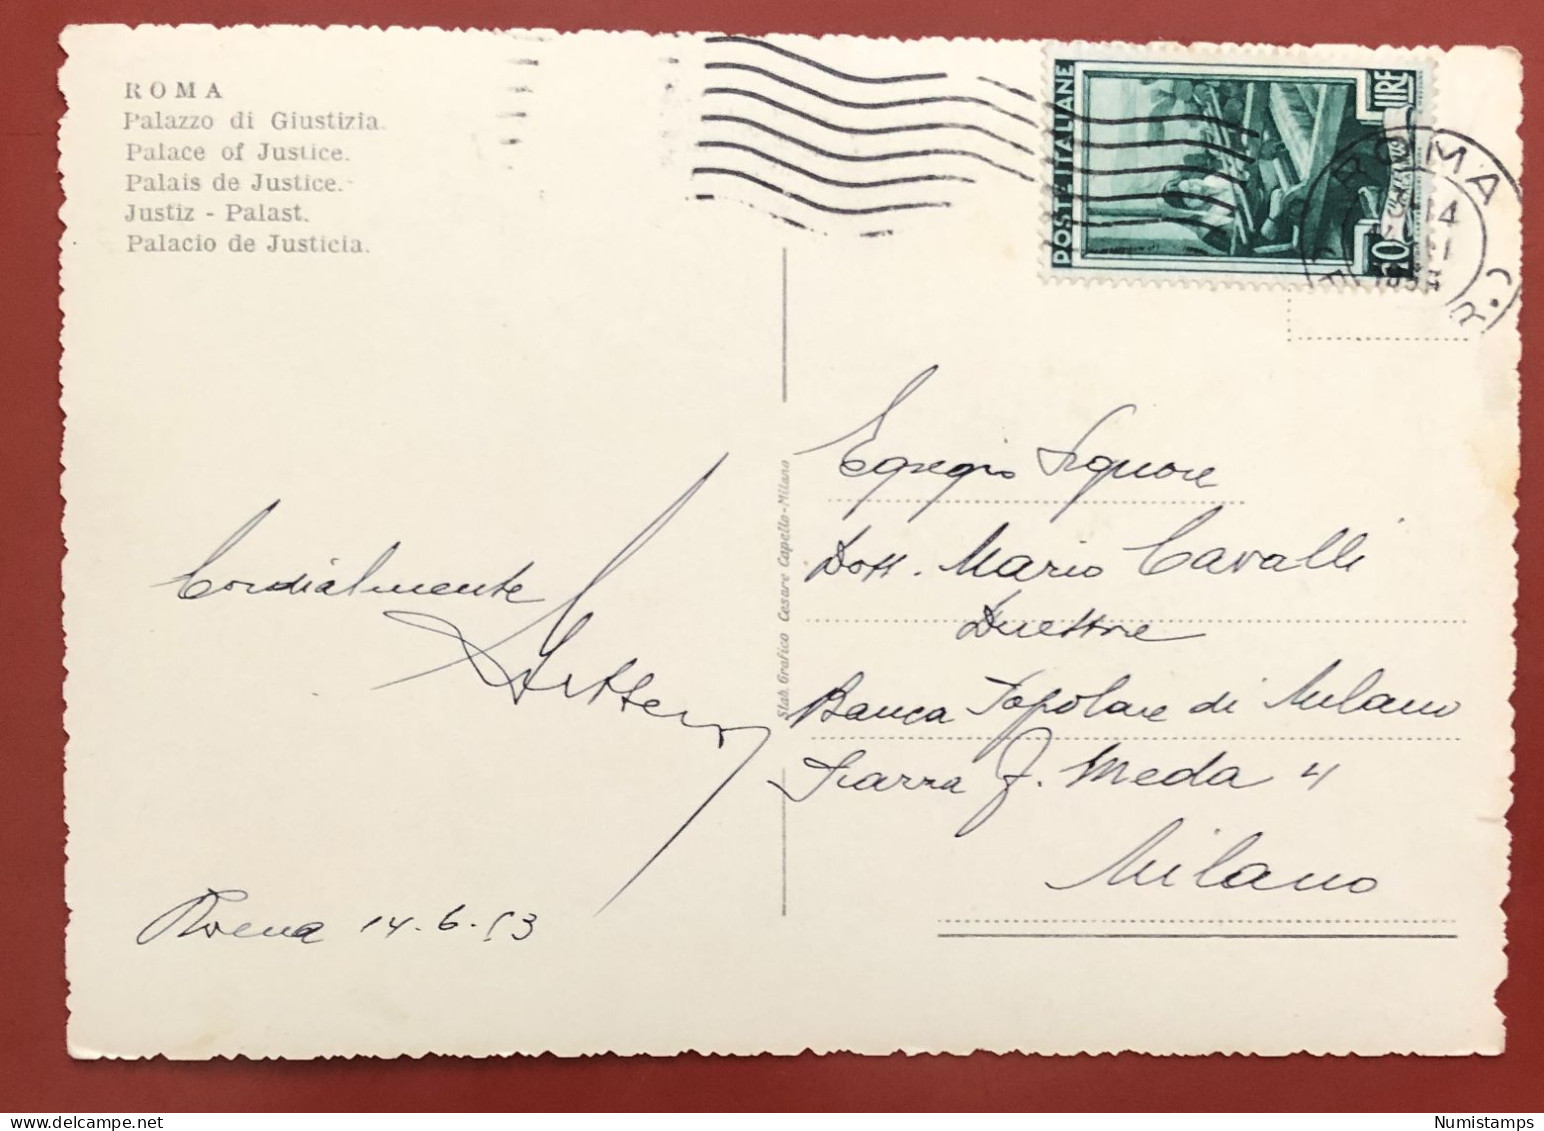 ROMA
Palazzo di Giustizia.
Palace of Justice.
Palais de Justice.
Justiz - Palast.
Palacio de Justicia.
POSTE ITALIANE
LIRE
10
ROMA
14
Egregio Signore
Dott. Mario Cavalli
Direttore
Banca Popolare di Milano
Piazza F. Meda 4
Milano
Cordialmente
Roma 14.6.53
Stab. Grafico Cesare Capello-Milano
Numistamps